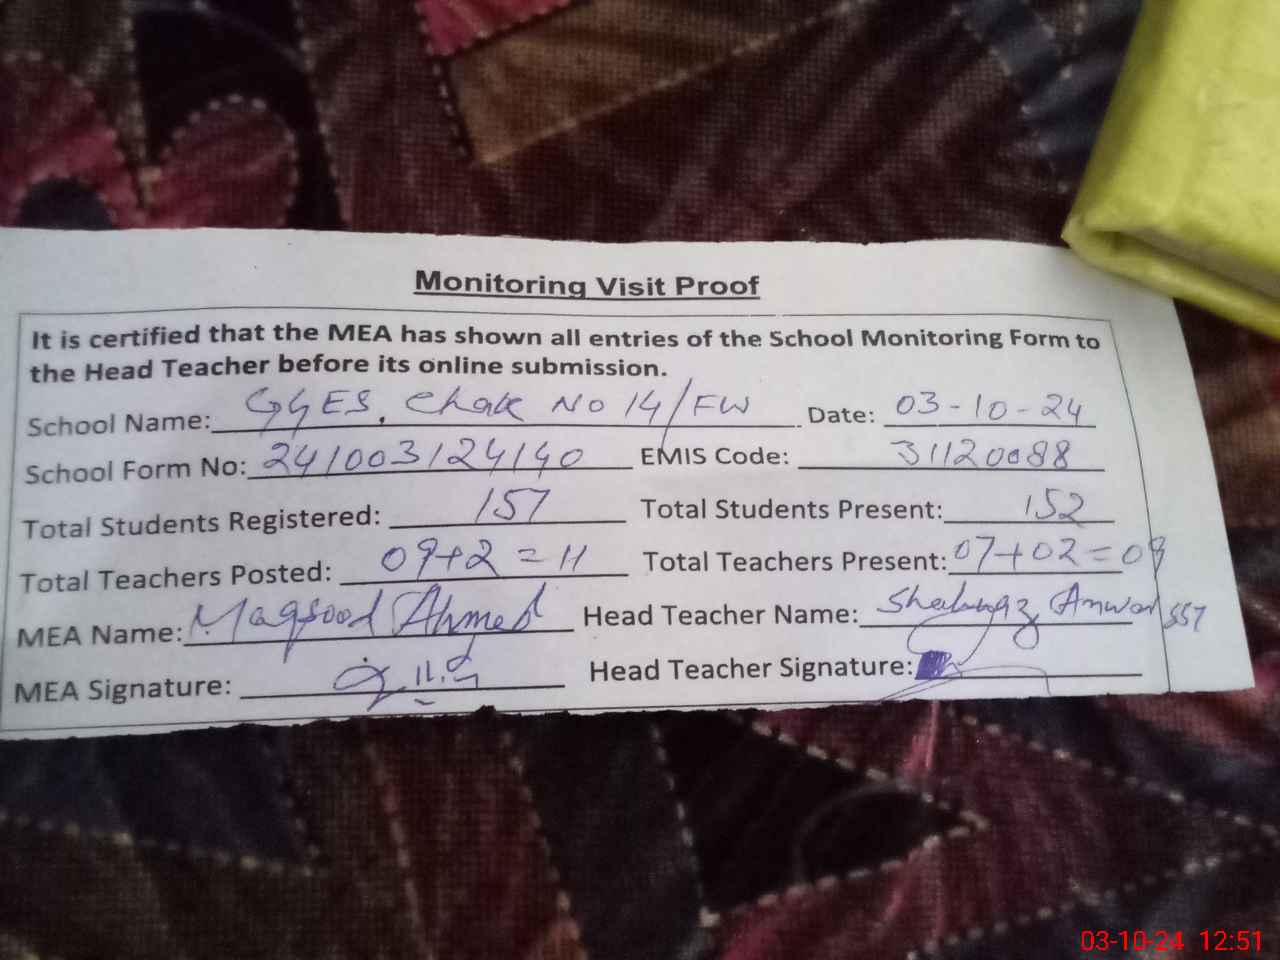 Monitoring Visit Proof
It is certified that the MEA has shown all entries of the School Monitoring Form to
the Head Teacher before its online submission.
School Name: GGES, Chak No 14/FW Date: 03-10-24
School Form No: 241003124140 EMIS Code: 31120088
Total Students Registered: 157 Total Students Present: 152
Total Teachers Posted: 09+2 = 11 Total Teachers Present: 07+02 = 09
MEA Name: Maqsood Ahmed Head Teacher Name: Anwar SST
MEA Signature: Head Teacher Signature:
03-10-24 12:51